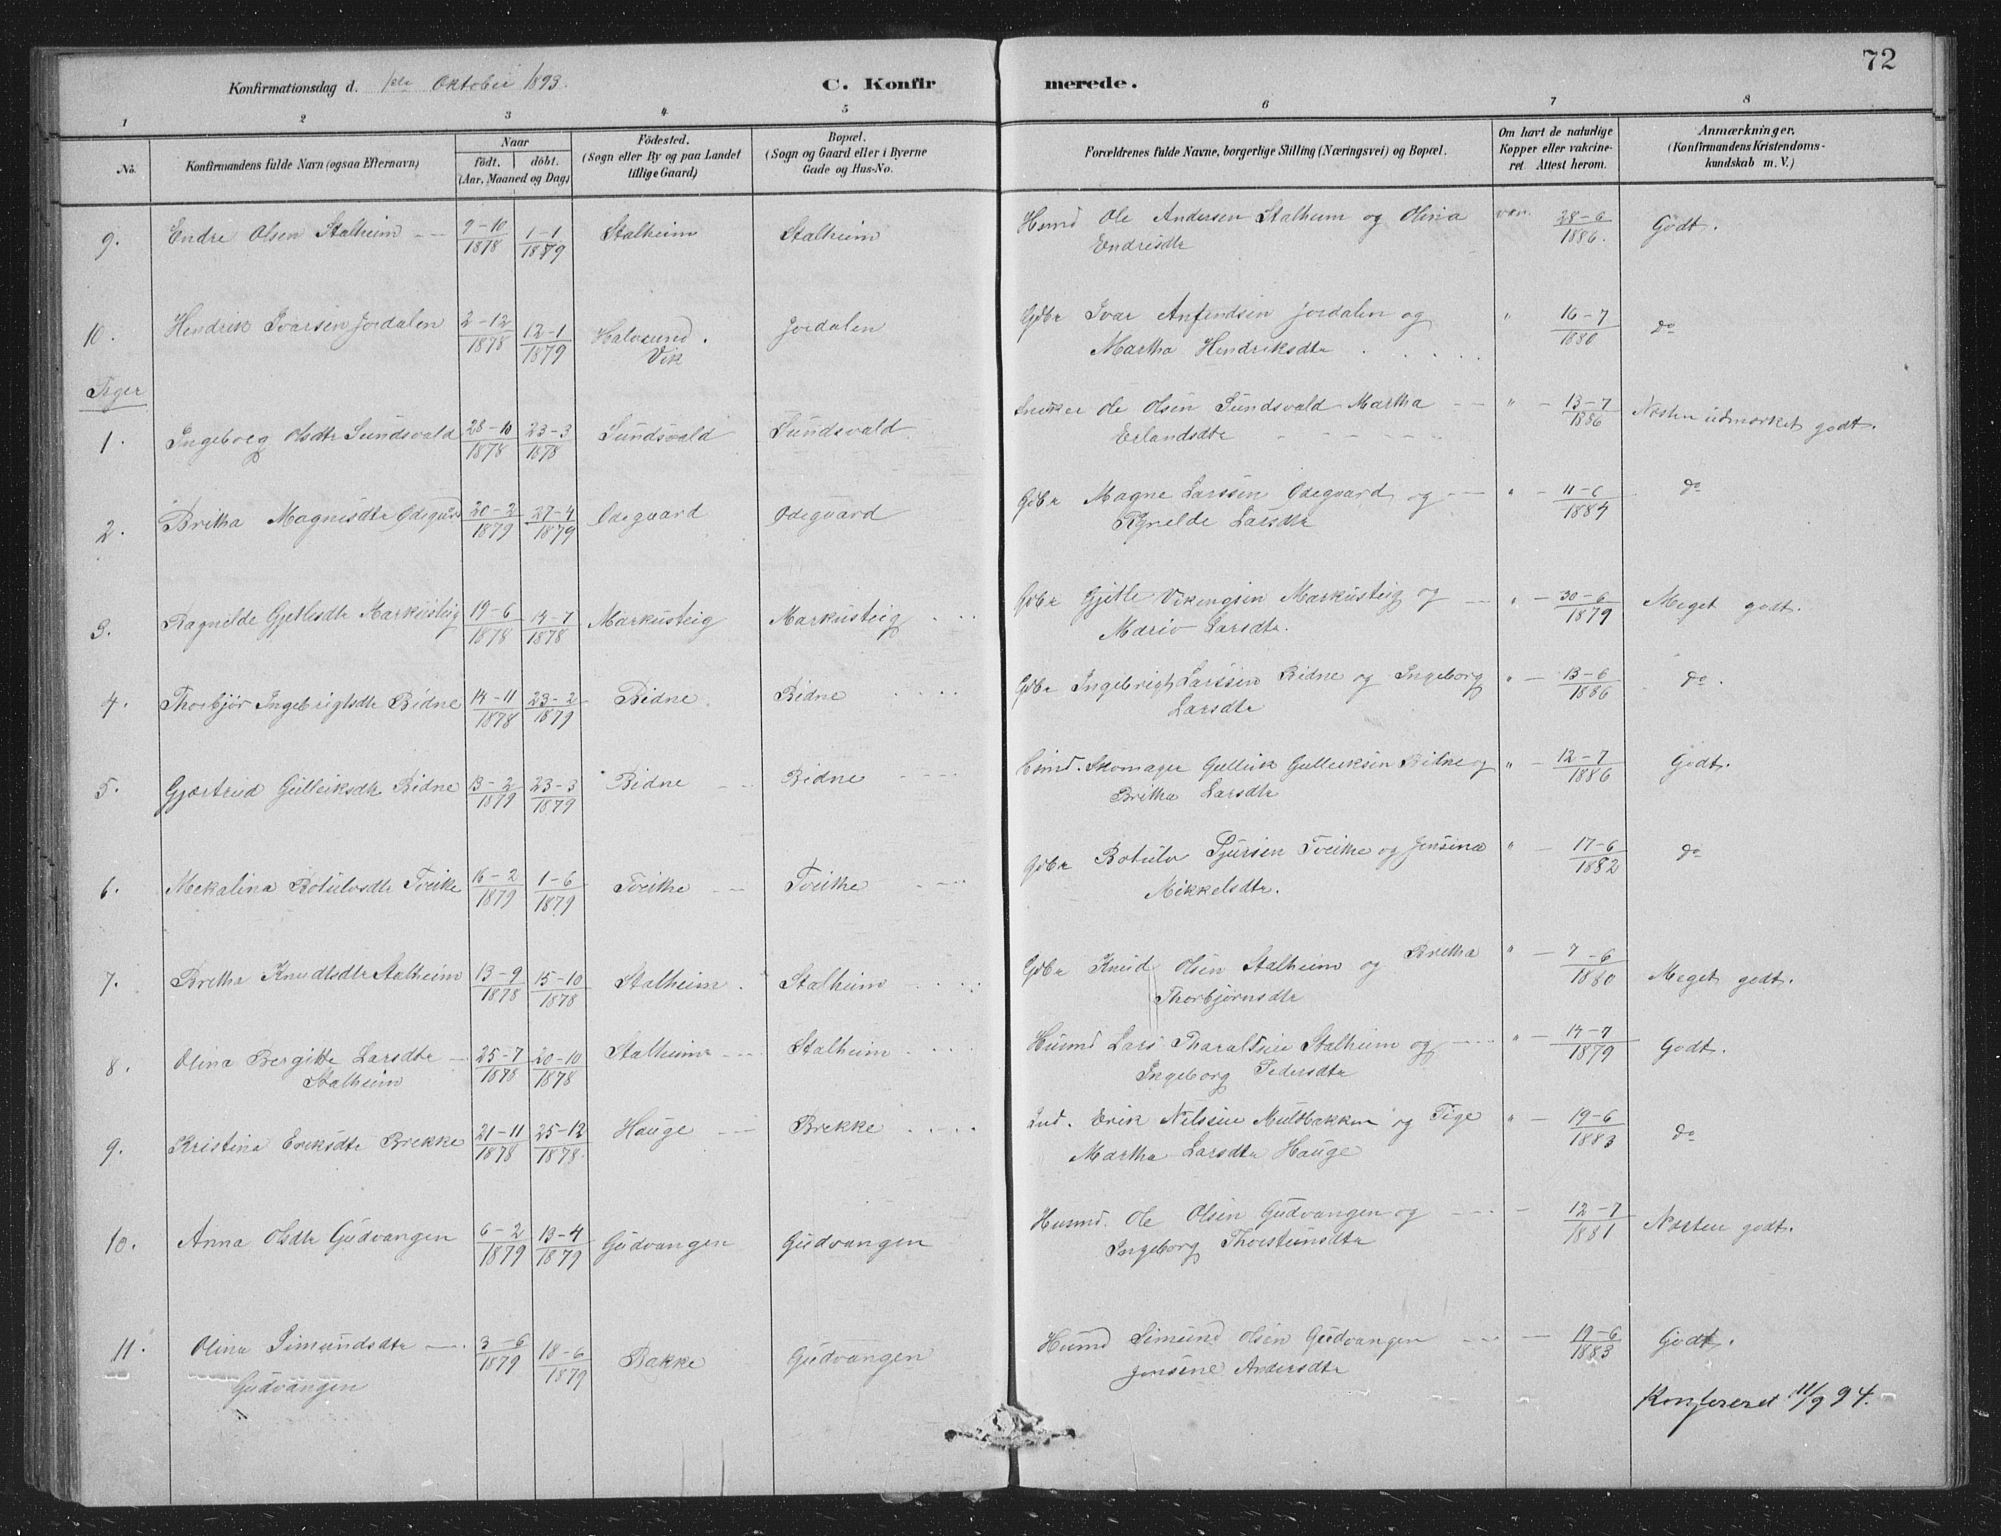 72
Konfirmationsdag d. 1ste Oktober 1893.
C. Konfirmerede.
1 2 3 4 5 6 7 8
No. Konfirmandens fulde Navn (ogsaa Efternavn) Naar født. døbt. (Aar, Maaned og Dag) Fødested. (Sogn eller By og paa Landet tillige Gaard) Bopæl. (Sogn og Gaard eller i Byerne Gade og Hus-No. Forældrenes fulde Navne, borgerlige Stilling (Næringsvei) og Bopæl. Om havt de naturlige Kopper eller vakcineret Attest herom. Anmærkninger. (Konfirmandens Kristendomskundskab m. V.)
9. Endre Olsen Stalheim 9-10 1878 1-1 1879 Stalheim Stalheim Husmd Ole Andersen Stalheim og Olina vac. 28-6 1886. Godt.
Endresdtr
10. Hendrik Ivarsen Jordalen 2-12 1878 12-1 1879 Halvsund. Jordalen Gdbr Ivar Anfindsen Jordalen og " 16-7 1880 do
Vik Martha Hendriksdtr
Piger
1. Ingeborg Olsdtr Sundsvald 28-10 1878 23-3 1878 Sundsvald Sundsvald Snekker Ole Olsen Sundsvald Martha " 13-7 1886 Næsten udmærket godt.
Erlandsdtr
2. Britha Magnesdtr Odegard 20-2 1879 27-4 1879 Odegaard Odegaard Gdbr Magne Larssen Odegaard og " 11-6 1884 do
Ragnelde Larsdtr
3. Ragnilde Gjetlesdtr Markusteig 19-6 1878 14-7 1878 Markusteig Markusteig Gdbr Gjetle Vikingsen Markusteig og " 30-6 1879 Meget godt.
Mario Larsdtr.
4. Thorbjør Ingebrigtsdtr Bidne 14-11 1878 23-2 1879 Bidne Bidne Gdbr Ingebrigt Larssen Bidne og Ingeborg " 13-6 1886 do.
Larsdtr
5. Gjærtrud Gulleiksdtr Bidne 13-2 1879 23-3 1879 Bidne Bidne Skomager Gulleik Gulleiksen Bidne og " 12-7 1886 Godt.
Britha Larsdtr
6. Mekalina Botulvsdtr Tveite 16-2 1879 1-6 1879 Tveite Tveite Gdbr Botulv Sjursen Tveite og Jensina " 17-6 1882 do
Mikkelsdtr.
7. Britha Knudtsdtr Stalheim 13-9 1878 15-10 1878 Stalheim. Stalheim Gdbr Knud Olsen Stalheim og Britha " 7-6 1880 Meget godt.
Thorbjørnsdtr
8. Olina Bergitte Larsdtr 25-7 1878 20-10 1878 Stalheim Stalheim Husmd Lars Tharaldsen Stalheim og " 14-7 1879 Godt.
Stalheim Ingeborg Pedersdtr
9. Kristina Eriksdtr Brekke 21-11 1878 25-12 1878. Hauge Brekke Ind. Erik Nilssen Muldbakken og Pige " 19-6 1883 do
Martha Larsdtr Hauge
10. Anna Olsdtr Gudvangen 6-2 1879 13-4 1879 Gudvangen Gudvangen Husmd. Ole Olsen Gudvangen og 12-7 1881 Næsten godt.
Ingeborg Thorsteinsdtr
11. Olina Simundsdtr 3-6 1879 18-6 1879 Bakke Gudvangen Husmd Simund Olsen Gudvangen 19-6 1883 Godt.
Gudvangen Jensine Andersdtr
Konfereret 11/9 94.